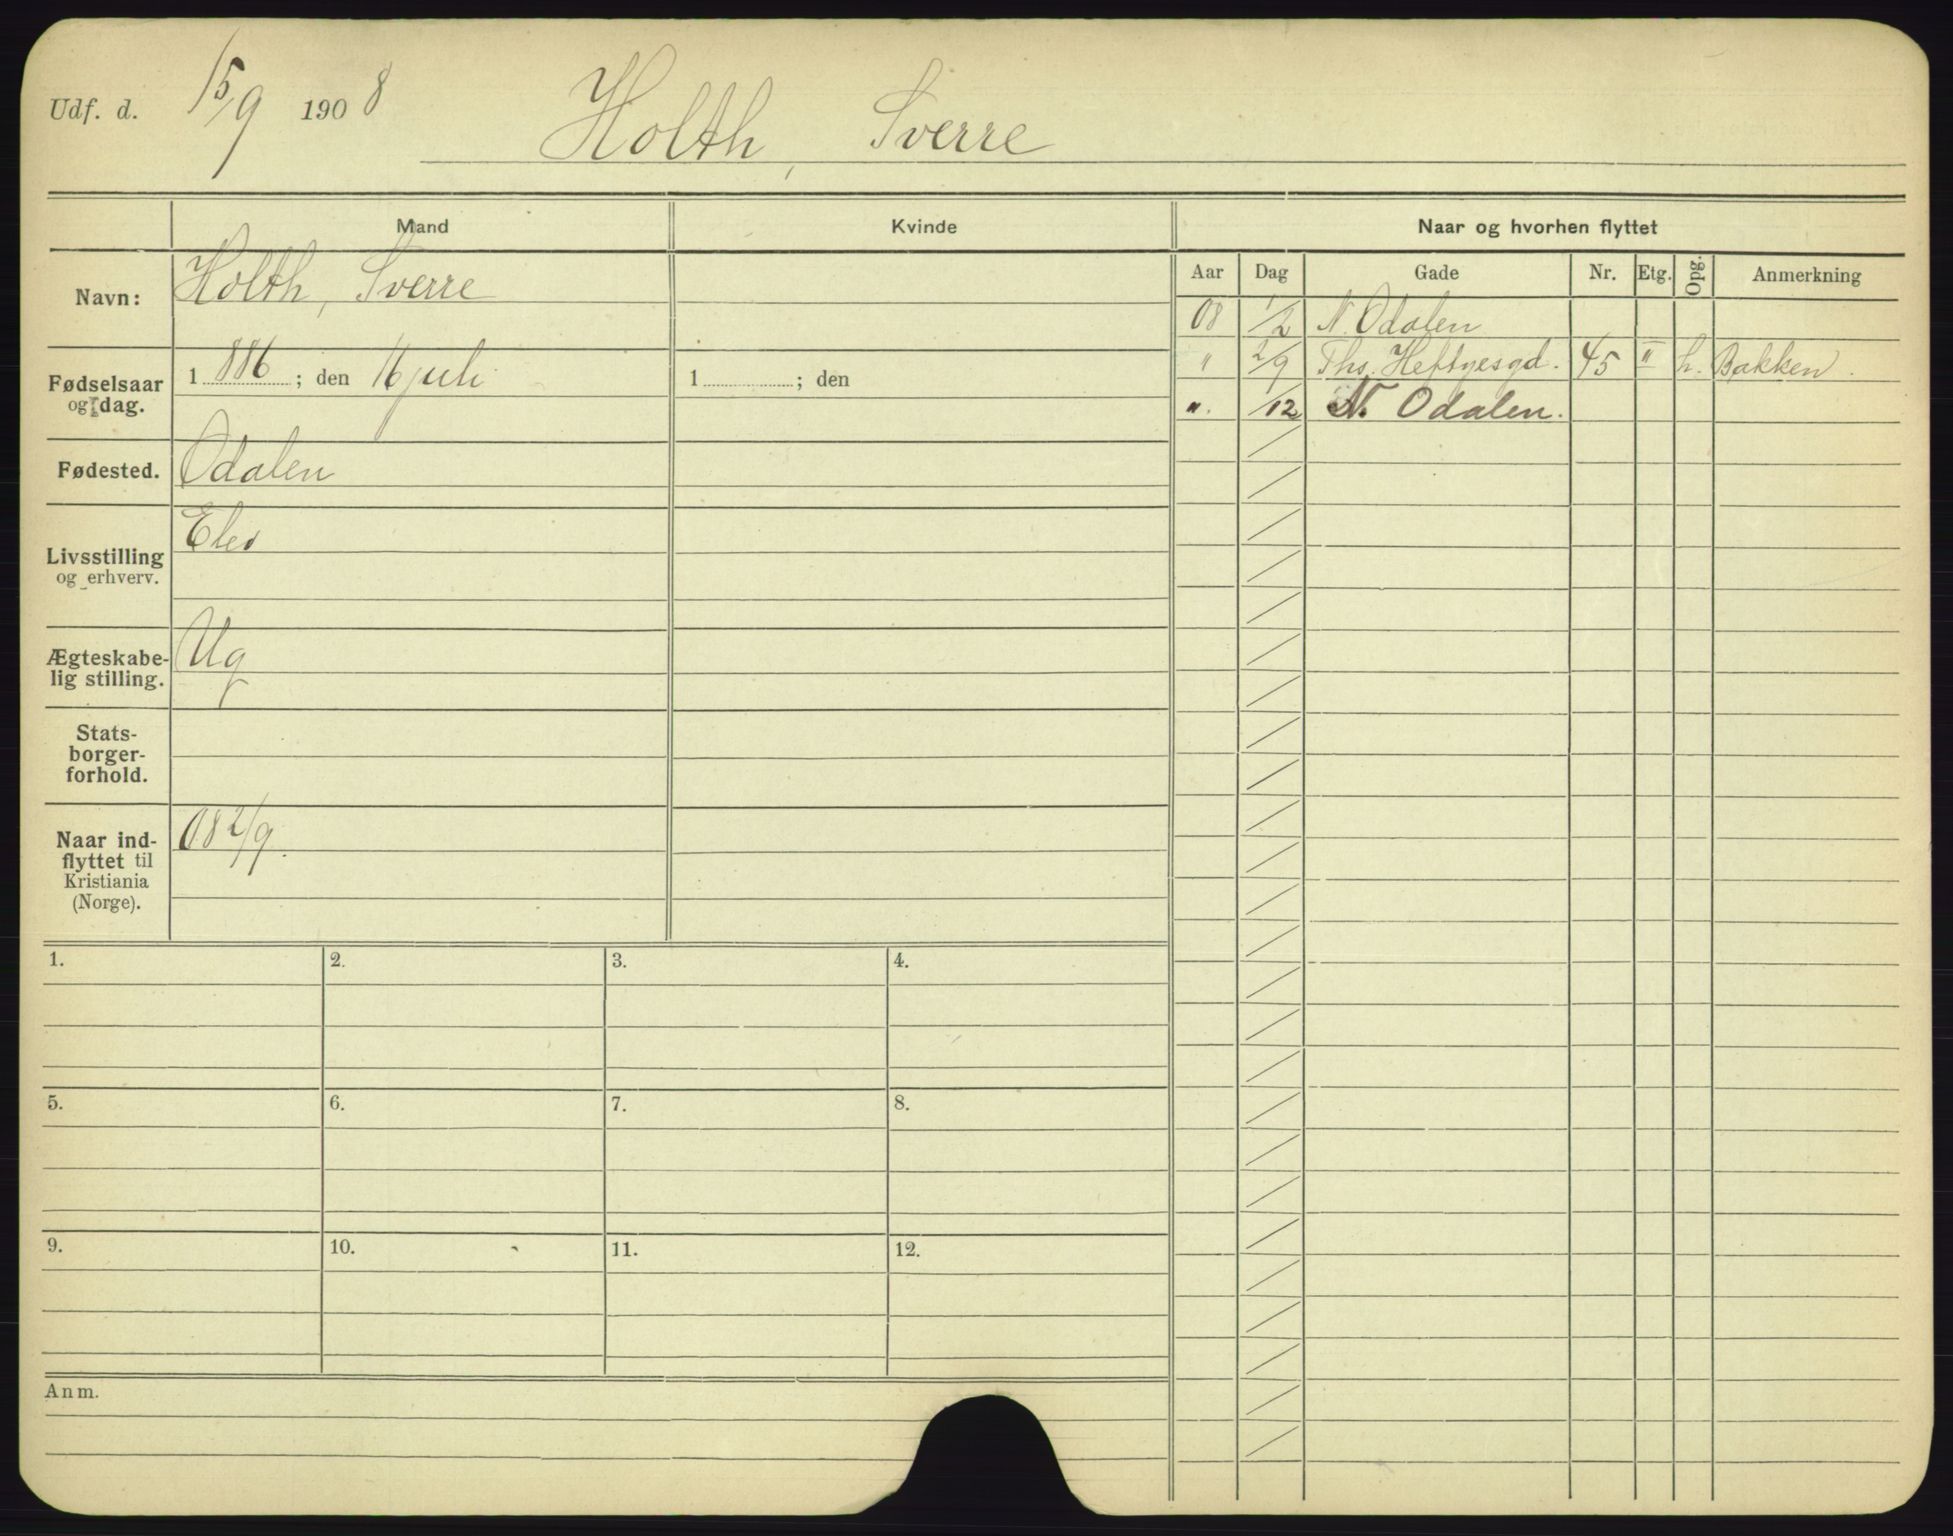 Udf. d. 15/9 1908 Holth, Sverre
Mand Kvinde Naar og hvorhen flyttet
Navn: Holth, Sverre
Fødselsaar og dag. 1886; den 16 juli 1 ; den
Fødested. Odalen
Livsstilling og erhverv. Elev
Ægteskabe-
lig stilling. Ug
Stats-
borger-
forhold.
Naar ind-
flyttet til
Kristiania
(Norge). 08 2/9.
Aar Dag Gade Nr. Etg. Opg. Anmerkning
08 1/2 N. Odalen
" 2/9 Ths. Heftyesgd. 45 II h. Bakken.
". /12 N. Odalen.
1. 2. 3. 4.
5. 6. 7. 8.
9. 10. 11. 12.
Anm.